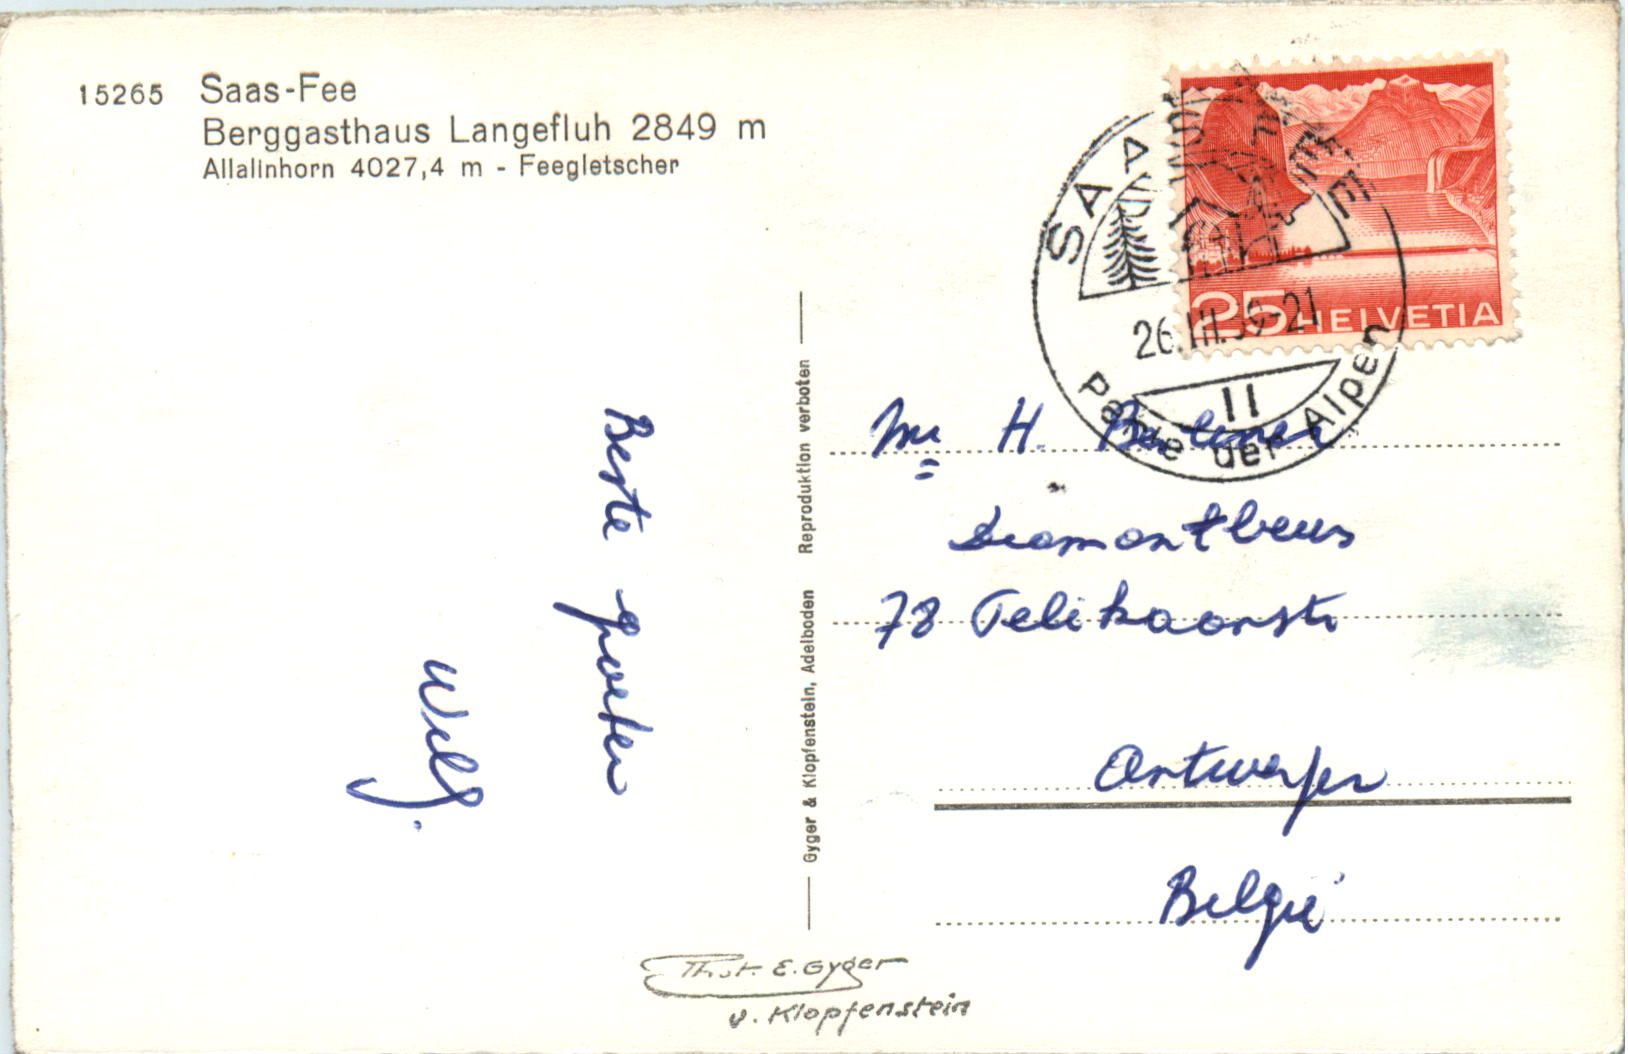 15265 Saas-Fee
Berggasthaus Langefluh 2849 m
Allalinhorn 4027,4 m - Feegletscher
SAAS-FEE
26.III.59-21
II
Perle der Alpen
25 HELVETIA
Beste groeten
Gyger & Klopfenstein, Adelboden Reproduktion verboten
Mr H.
Diamantbeurs
78 Pelikaanstr
Antwerpen
België
Phot. E. Gyger
u. Klopfenstein